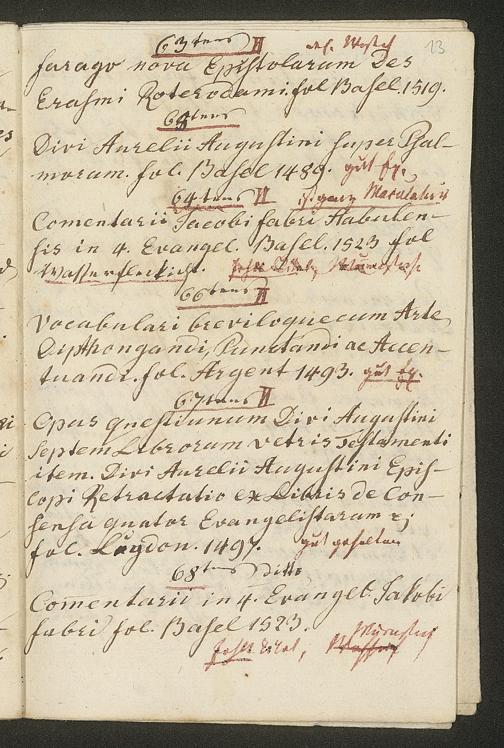 13
63tens II
farago nova Epistolarum Des
Erasmi Roterodami. fol Basel. 1519.
64tens
Divi Aurelii Augustini super Psal-
morum. fol. Basel 1489. gut Ex.
64tens II ist ganz Maculatur
Comentarii Jacobi fabri Stabulen-
sis in 4. Evangel. Basel. 1523 fol
Wasserfleckicht. fehlt Titel,
66tens II
Vocabulari breviloquecum Arte
Dipthongandi, Punctandi ac Accen-
tuandi. fol. Argent 1493. gut Ex.
67tens II
Opus questiunum Divi Augustini
Septem Librorum vetris Testamenti
item. Divi Aurelii Augustini Epis-
copi Retractatio ex Libris de Con-
sensa quator Evangelistarum
fol. Lugdon. 1497. gut gehalten
68tens Ditto
Comentarii in 4. Evangel. Jakobi
fabri fol. Basel 1523.
fehlt Titel,